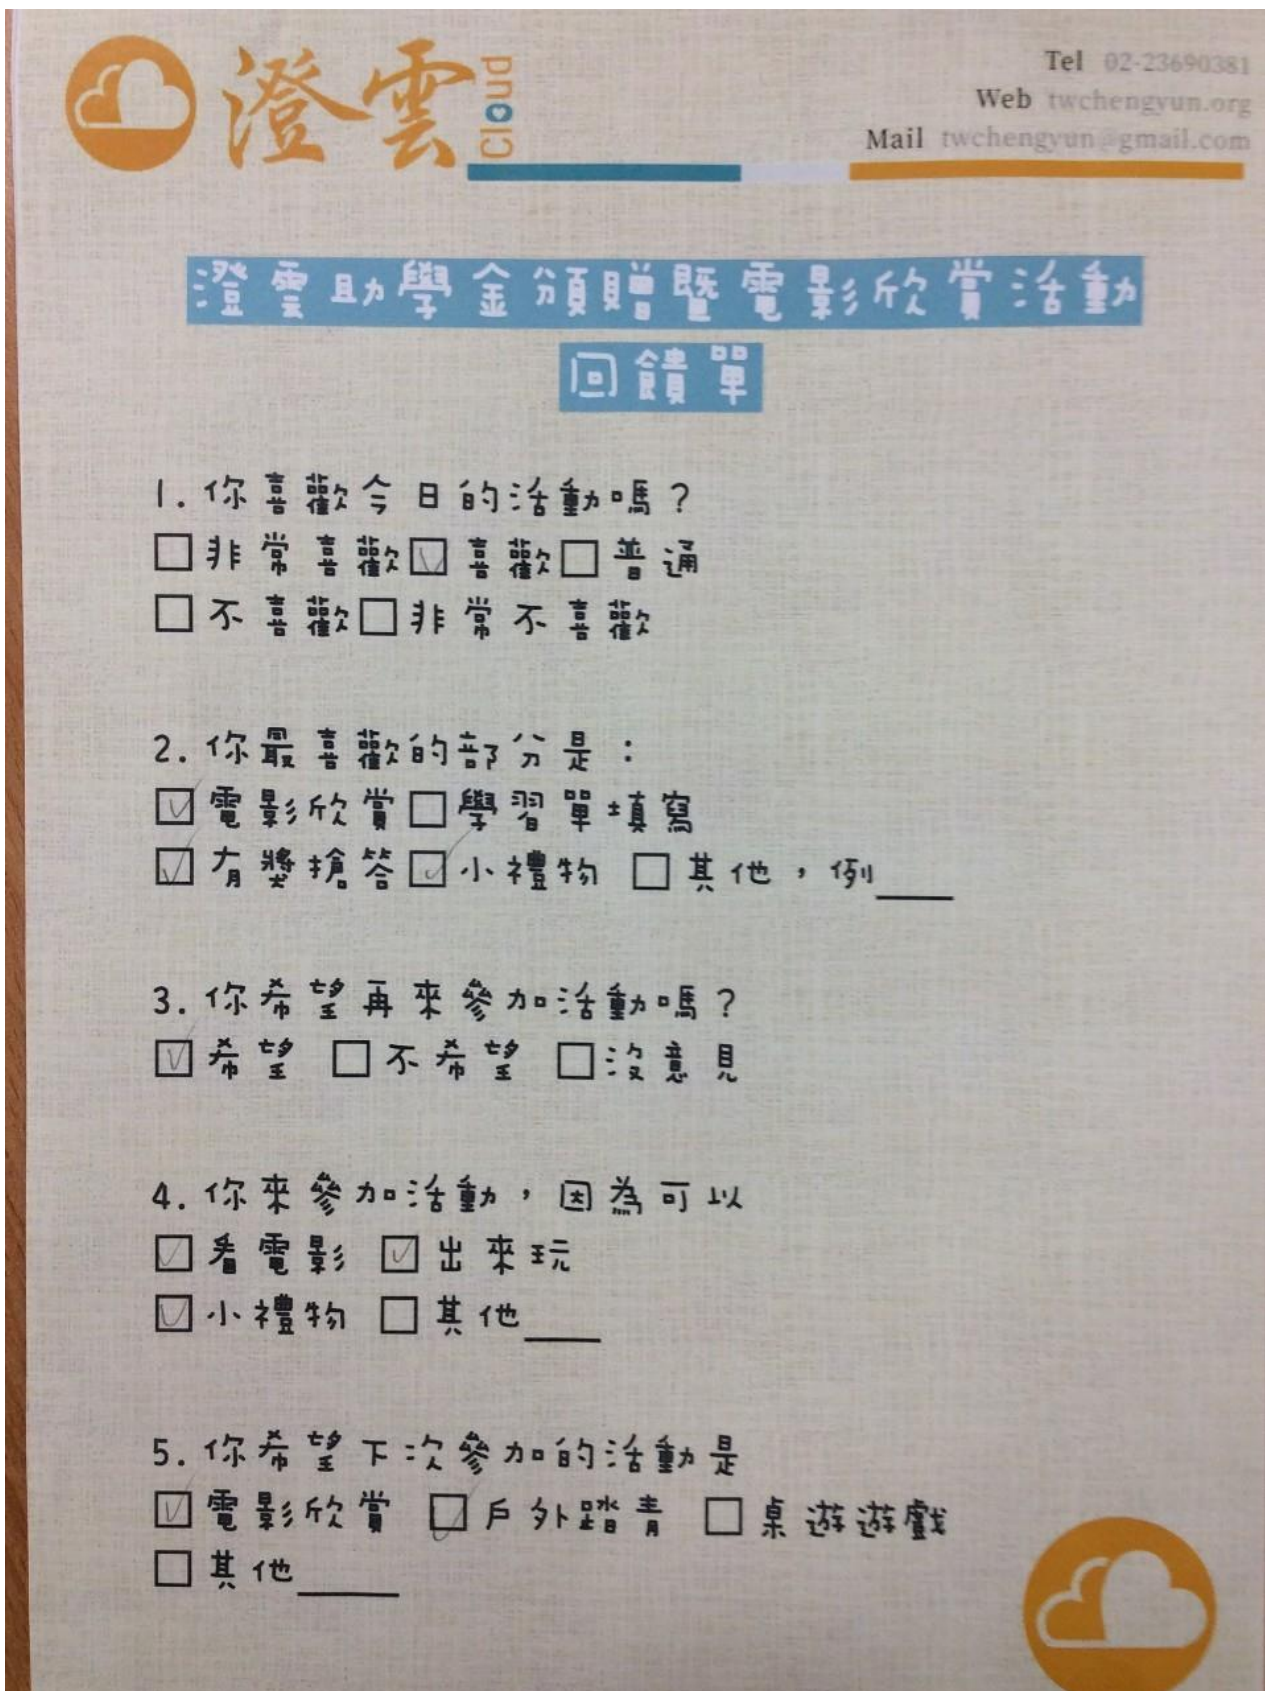 澄雲 Cloud
Tel 02-23690381
Web twchengyun.org
Mail twchengyun@gmail.com
澄雲助學金頒贈暨電影欣賞活動
回饋單
1.你喜歡今日的活動嗎？
□非常喜歡☑喜歡□普通
□不喜歡□非常不喜歡
2.你最喜歡的部分是：
☑電影欣賞□學習單填寫
☑有獎搶答☑小禮物 □其他，例___
3.你希望再來參加活動嗎？
☑希望 □不希望 □沒意見
4.你來參加活動，因為可以
☑看電影 ☑出來玩
☑小禮物 □其他___
5.你希望下次參加的活動是
☑電影欣賞 ☑戶外踏青 □桌遊遊戲
□其他____